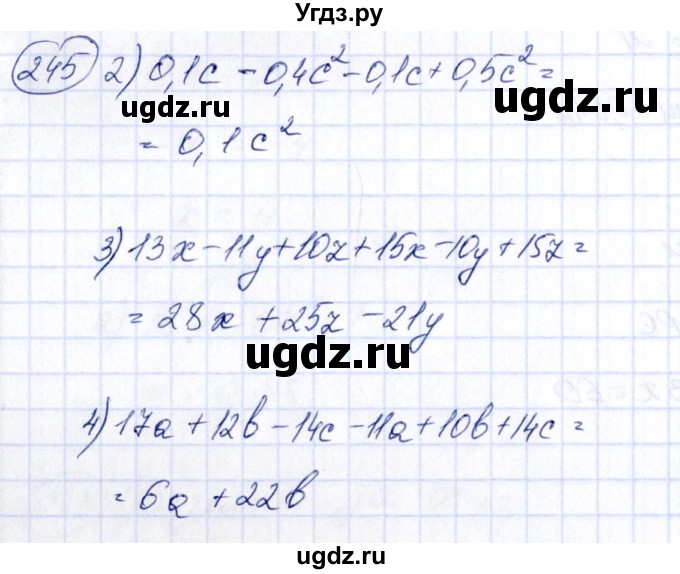 Угдз.ру
245 2) 0,1c - 0,4c² - 0,1c + 0,5c² =
ugdz.ru ugdz.ru
= 0,1c²
3) 13x - 11y + 10z + 15x - 10y + 15z =
= 28x + 25z - 21y
ugdz.ru
4) 17a + 12b - 14c - 11a + 10b + 14c =
= 6a + 22b
ugdz.ru
ugdz.ru